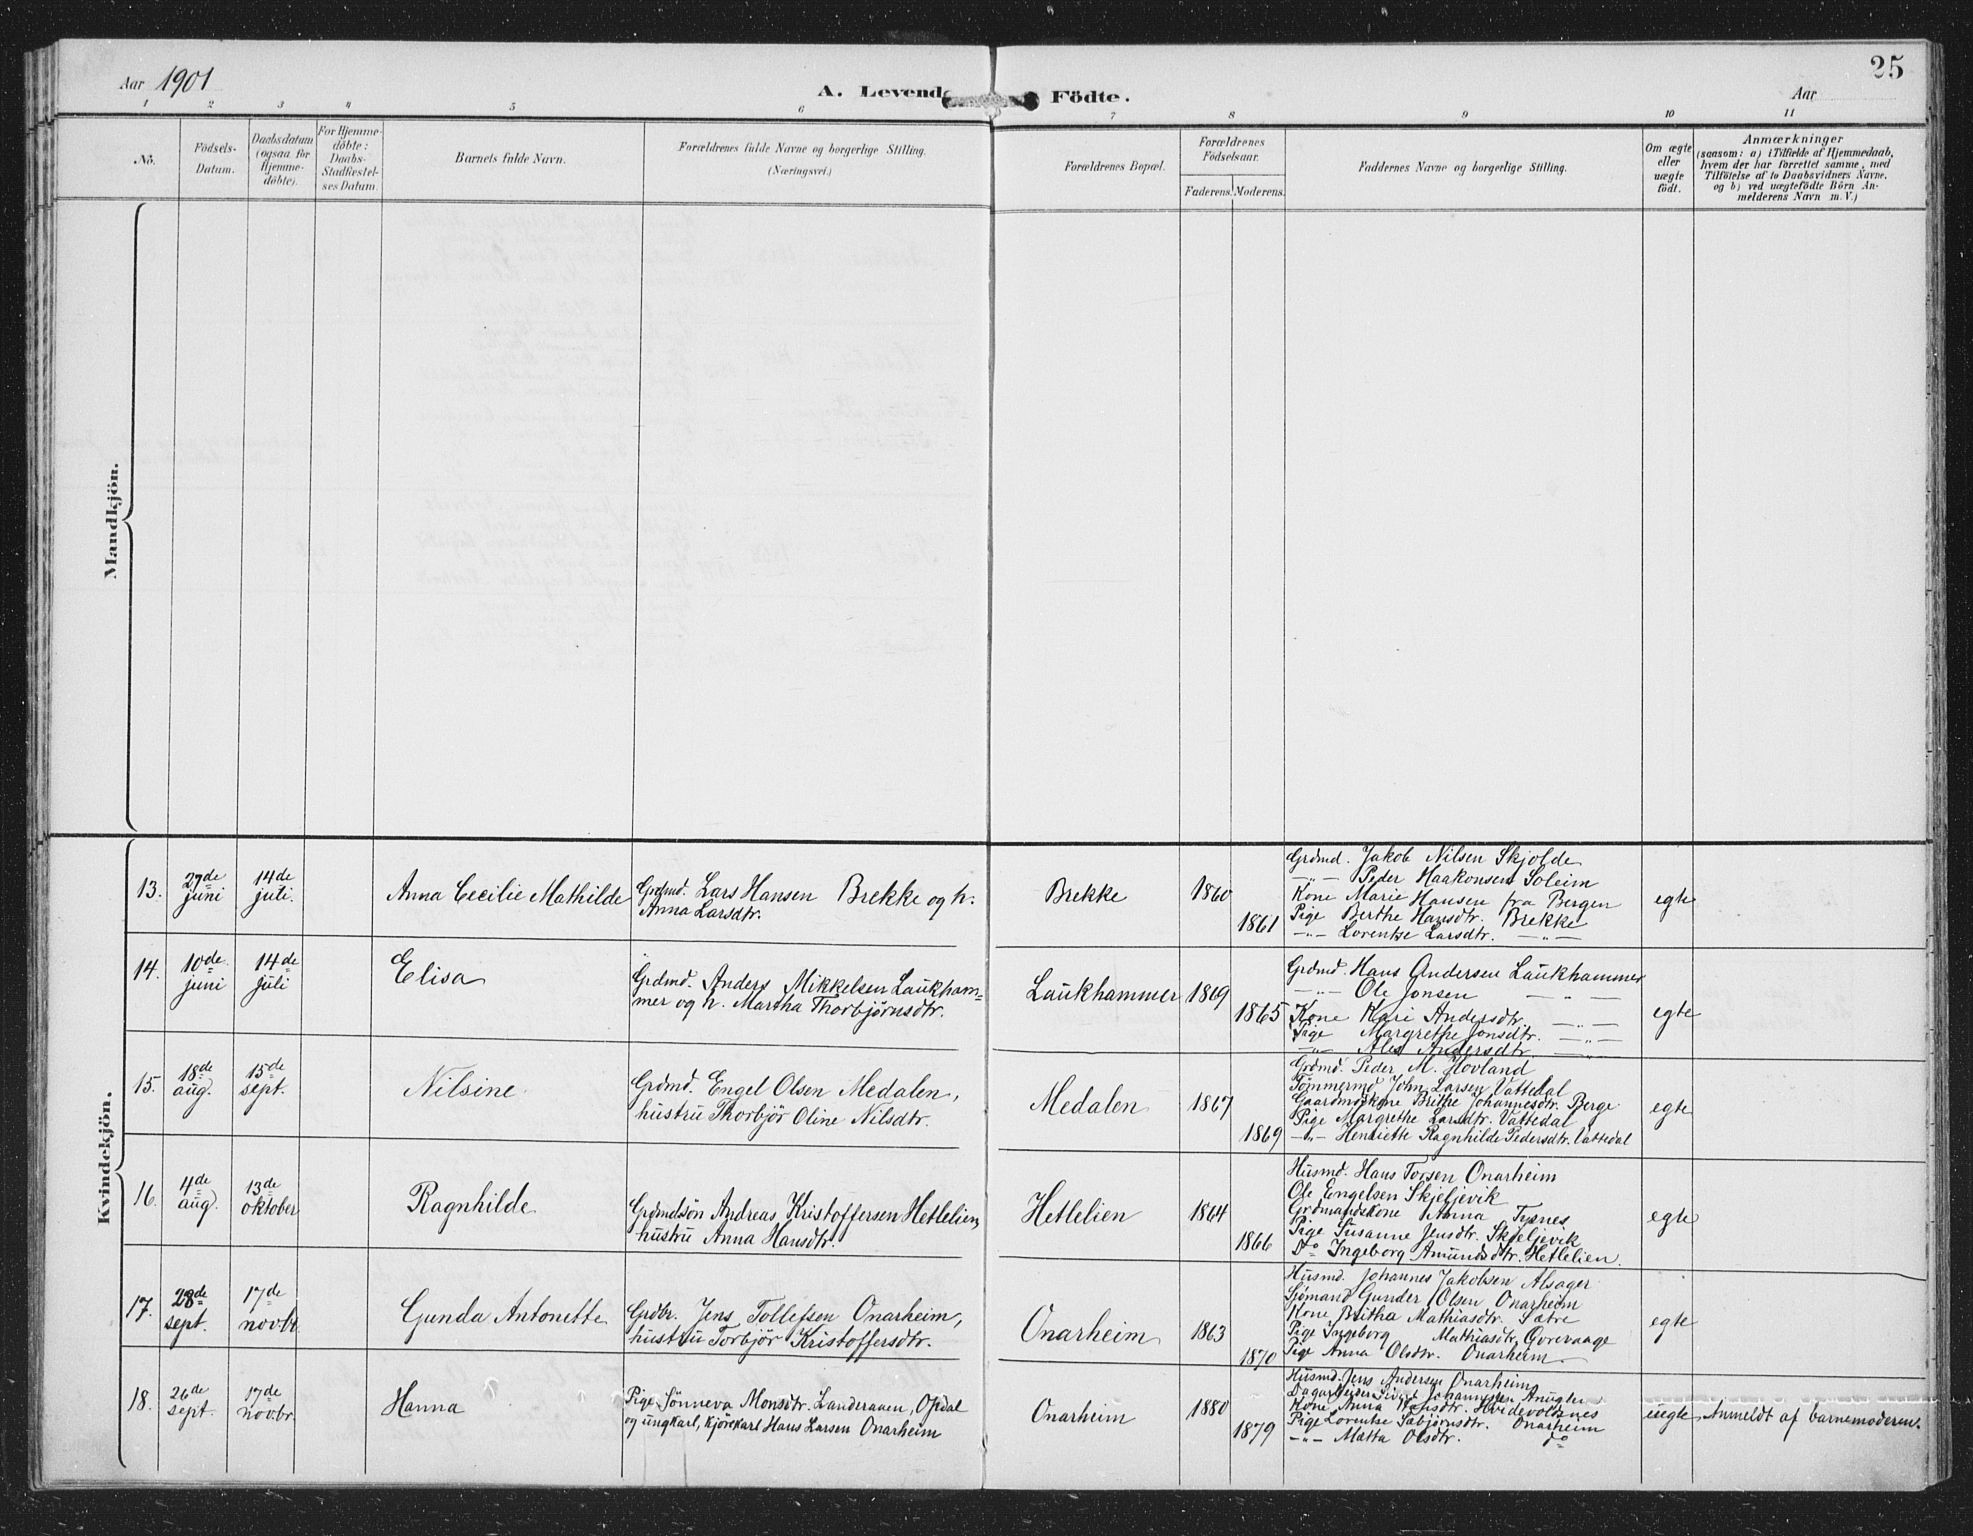 25
Aar 1901
A. Levende Födte.
Aar
1 2 3 4 5 6 7 8 9 10 11
No.
Födsels-
Datum.
Daabsdatum
(ogsaa for
Hjemme-
döbte).
For Hjemme-
döbte:
Daabs-
Stadfæstel-
ses Datum.
Barnets fulde Navn.
Forældrenes fulde Navne og borgerlige Stilling.
(Næringsvei.)
Forældrenes Bopæl.
Forældrenes
Födselsaar.
Faderens. Moderens.
Faddernes Navne og borgerlige Stilling.
Om ægte
eller
uægte
födt.
Anmærkninger
(saasom: a) i Tilfælde af Hjemmedaab,
hvem der har forrettet samme, med
Tilföielse af to Daabsvidners Navne,
og b) ved uægtefödte Börn An-
melderens Navn m. V.)
Mandkjön.
Kvindekjön.
13.
27de
juni
14de
juli.
Anna Cecilie Mathilde
Grdmd. Lars Hansen Brekke og h.
Anna Larsdtr.
Brekke
1860
1861
Grdmd. Jakob Nilsen Skjolde
—"— Peder Haakonsen Soleim
Kone Marie Hansen fra Bergen
Pige Berthe Hansdtr. Brekke
—"— Lorentse Larsdtr. —"—
egte
14.
10de
juni
14de
juli
Elisa
Grdmd. Anders Mikkelsen Laukham=
mer og h. Martha Thorbjørnsdtr.
Laukhammer
1869
1865
Grdmd. Hans Andersen Laukhammer
—"— Ole Jonsen —"—
Kone Kari Andersdtr. —"—
Pige Margrethe Jonsdtr. —"—
—"— Ales Andersdtr. —"—
egte
15.
18de
aug.
15de
sept.
Nilsine
Grdmd. Engel Olsen Medalen,
hustru Thorbjør Oline Nilsdtr.
Medalen
1867
1869
Grdmd. Peder M. Hovland
Tømmermd. John Larsen Vattedal
Gaardmdskone Brithe Johannesdtr. Berge
Pige Margrethe Larsdtr. Vattedal
—"— Henriette Ragnhilde Pedersdtr. Vattedal
egte
16.
4de
aug.
13de
oktober
Ragnhilde
Grdmdsøn Andreas Kristoffersen Hetlelien,
hustru Anna Hansdtr.
Hetlelien
1864
1866
Husmd. Hans Torsen Onarheim
Ole Engelsen Skjeljevik
Grdmandskone Anna Tysnes
Pige Susanne Jensdtr. Skjeljevik
Do Ingeborg Amundsdtr. Hetlelien.
egte
17.
28de
sept.
17de
novbr.
Gunda Antonette
Grdbr. Jens Tollefsen Onarheim,
hustru Torbjør Kristoffersdtr.
Onarheim
1863
1870
Husmd. Johannes Jakobsen Alsager
Sjømand Gunder Olsen Onarheim
Kone Britha Mathiasdtr. Sætre
Pige Ingeborg Mathiasdtr.
Pige Anna Olsdtr. Onarheim
egte
18.
26de
sept.
17de
novbr.
Hanna
Pige Sønneva Monsdtr. Landeraaen, Opdal
og ungkarl, kjørekarl Hans Larsen Onarheim
Onarheim
1880
1879
Husmd. Jens Andersen Onarheim
Dagarbeider Sivert Johannesen
Kone Anna Hansdtr.
Pige Lorentse Sabjørnsdtr. Onarheim
—"— Matta Olsdtr. do
uegte
Anmeldt af barnemoderen.